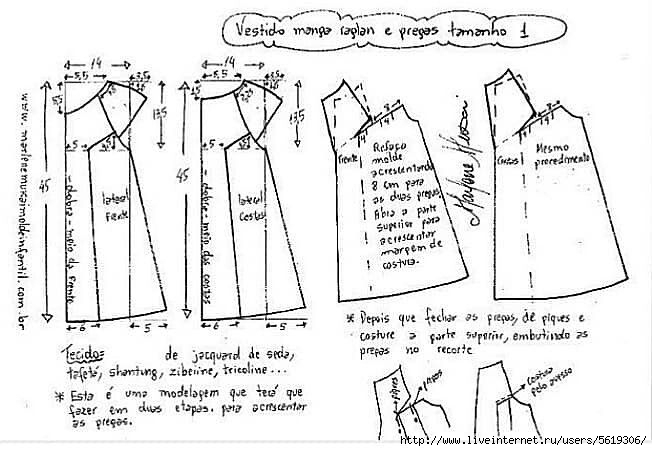 Vestido manga raglan e pregas tamanho 1
14
5,5
3,5
1,6
5,5
13,5
5
45
www.marlenemukaimoldeinfantil.com.br
dobra - meio da frente
lateral
frente
6
5
14
5,5
3,5
1,6
1,5
13,5
5
45
dobra - meio das costas
lateral
costas
6
5
8
4
4
Frente
Refaça
molde
acrescentando
8 cm para
as duas pregas.
Abra a parte
superior para
acrescentar
margem de
costura.
Marlene Mukai
8
4
4
Costas
Mesmo
procedimento
* Depois que fechar as pregas, dê piques e
costure a parte superior, embutindo as
pregas no recorte
Tecidos: de jacquard de seda,
tafetá, shantung, zibeline, tricoline...
* Esta é uma modelagem que terá que
fazer em duas etapas. para acrescentar
as pregas.
piques
costura
pelo avesso
http://www.liveinternet.ru/users/5619306/